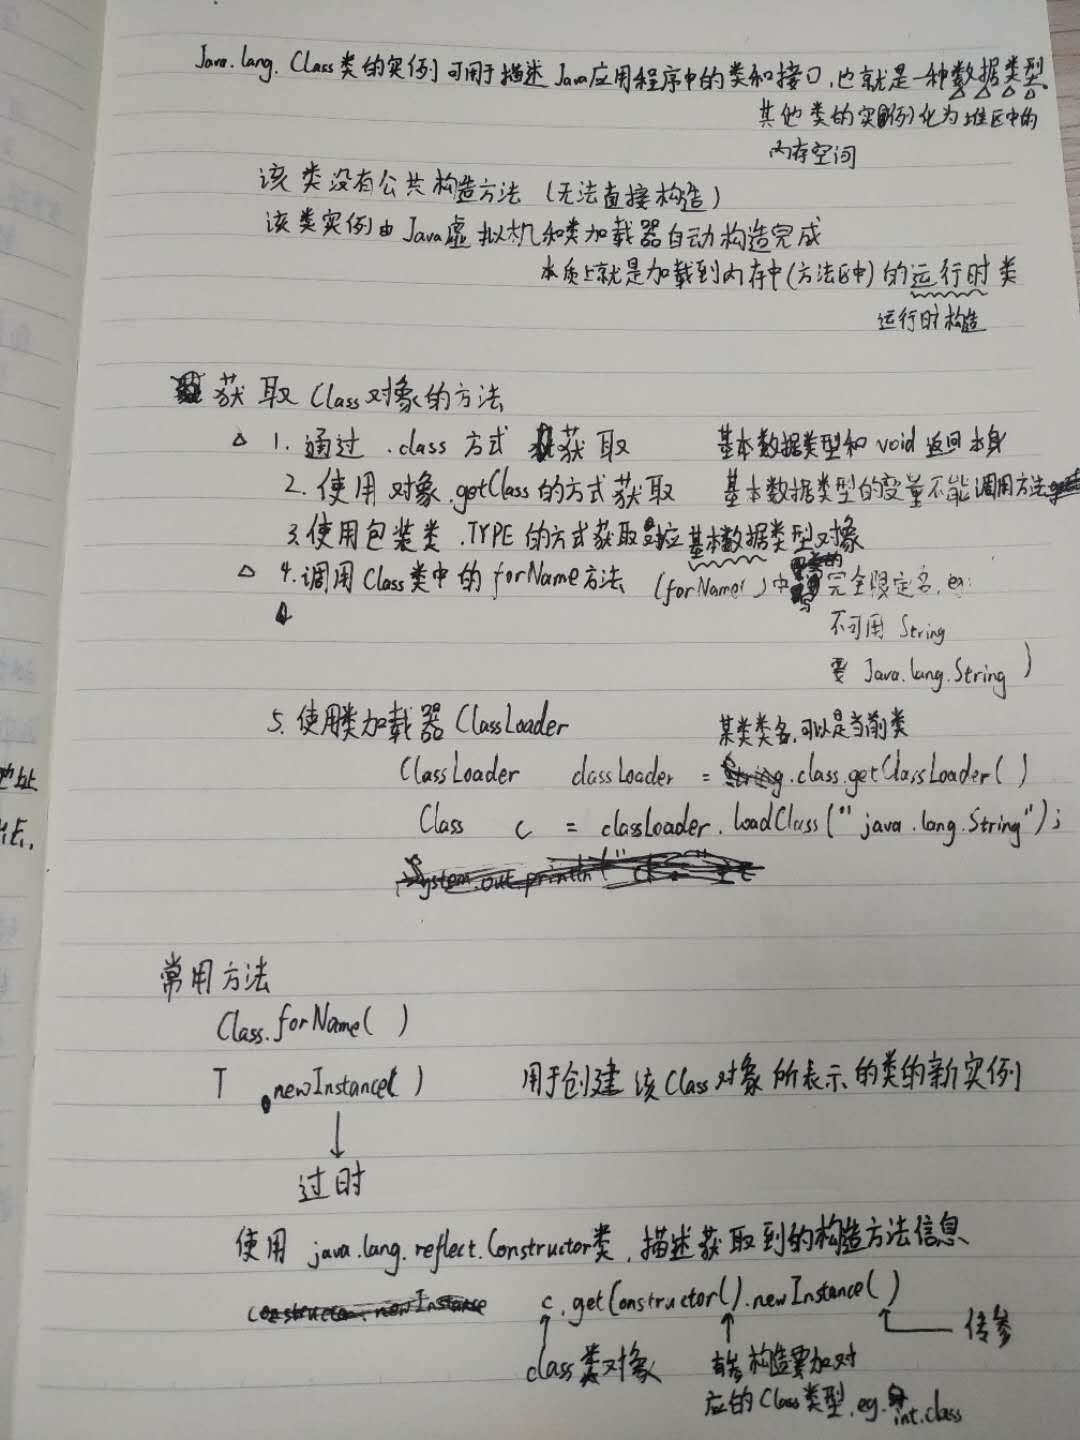 Java.lang.Class类的实例可用于描述Java应用程序中的类和接口,也就是一种数据类型.
其他类的实例化为堆区中的
内存空间
该类没有公共构造方法 (无法直接构造)
该类实例由Java虚拟机和类加载器自动构造完成
本质上就是加载到内存中(方法区中)的运行时类
运行时构造
获取Class对象的方法
△ 1.通过 .class 方式 获取 基本数据类型和 void 返回本身
2.使用对象.getClass的方式获取 基本数据类型的变量不能调用方法
3.使用包装类.TYPE的方式获取对应基本数据类型对象
△ 4.调用Class类中的forName方法 (forName( )中写类的完全限定名,eg:
不可用 String
要 Java.lang.String )
5.使用类加载器ClassLoader 某类类名,可以是当前类
ClassLoader classLoader = String.class.getClassLoader( )
Class c = classLoader.loadClass("java.lang.String");
System.out.println("
常用方法
Class.forName( )
T .newInstance( ) 用于创建该Class对象所表示的类的新实例
↓
过时
使用 java.lang.reflect.Constructor类,描述获取到的构造方法信息
constructor.newInstance c.getConstructor().newInstance( )
传参
class类对象 有参构造要加对
应的Class类型.eg.int.class
地址